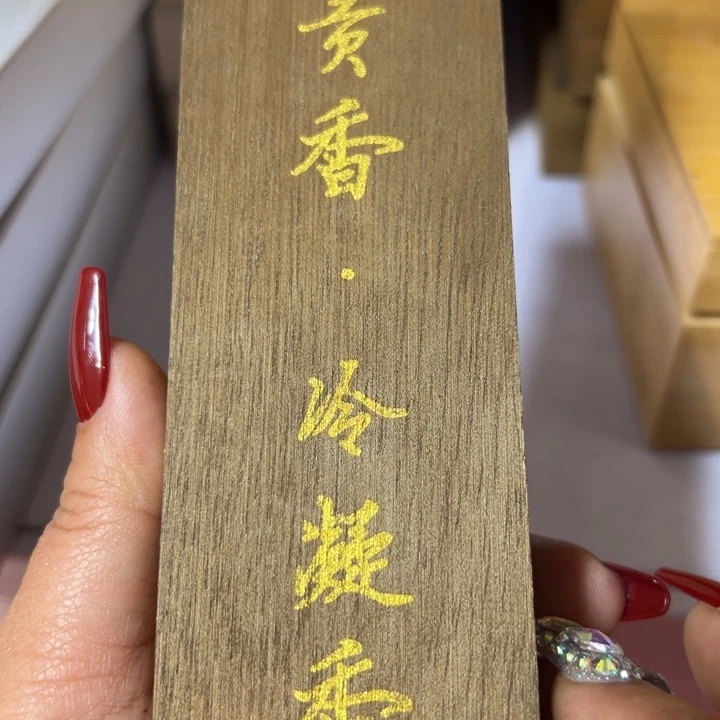 贡香·冷凝香